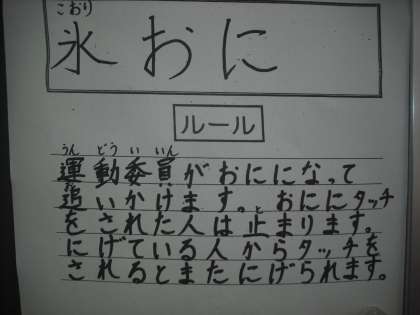 こおり
氷おに
ルール
うんどういいん
運動委員がおにになって
追いかけます。おににタッチ
と
をされた人は止まります。
にげている人からタッチを
されるとまたにげられます。